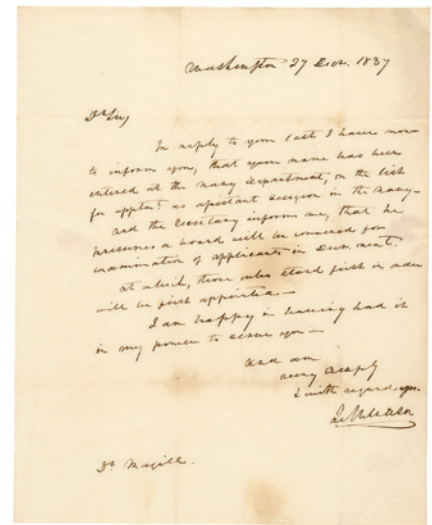 Washington 27 Decr. 1837
Dr Sir,
In reply to your last I have now
to inform you, that your name has been
entered at the navy department, on the list
for apptmt. as assistant surgeon in the navy—
and the Secretary informs me, that he
presumes a board will be convened for
examination of applicants in
at which, those who stand first in order
will be first appointed.—
I am happy in having had it
in my power to serve you—
and am
very
& with regard, yr.
Dr. Magill.